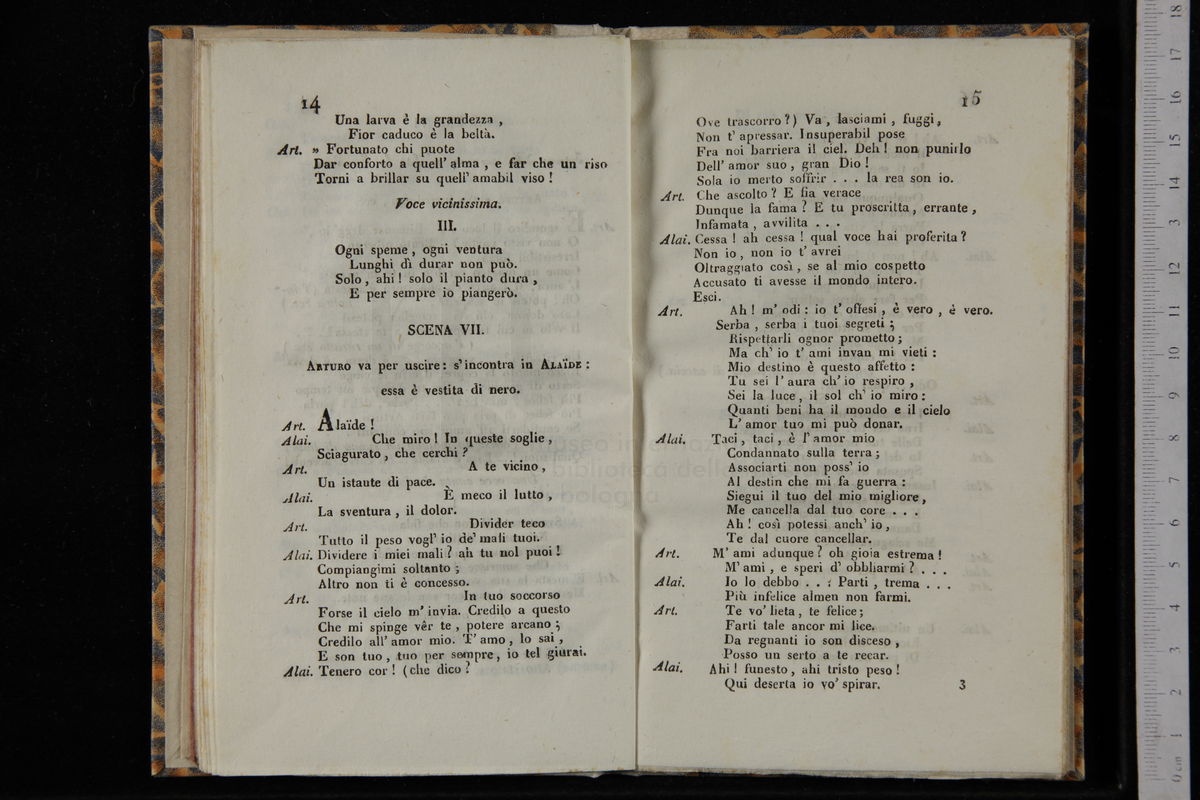 14
Una larva è la grandezza ,
Fior caduco è la beltà.
Art. » Fortunato chi puote
Dar conforto a quell' alma , e far che un riso
Torni a brillar su quell' amabil viso !
Voce vicinissima.
III.
Ogni speme , ogni ventura
Lunghi dì durar non può.
Solo , ahi ! solo il pianto dura ,
E per sempre io piangerò.
SCENA VII.
ARTURO va per uscire : s' incontra in ALAÏDE :
essa è vestita di nero.
Art. Alaïde !
Alai. Che miro ! In queste soglie ,
Sciagurato , che cerchi ?
Art. A te vicino ,
Un istante di pace.
Alai. È meco il lutto ,
La sventura , il dolor.
Art. Divider teco
Tutto il peso vogl' io de' mali tuoi.
Alai. Dividere i miei mali ? ah tu nol puoi !
Compiangimi soltanto ;
Altro non ti è concesso.
Art. In tuo soccorso
Forse il cielo m' invia. Credilo a questo
Che mi spinge vêr te , potere arcano ;
Credilo all' amor mio. T' amo , lo sai ,
E son tuo , tuo per sempre , io tel giurai.
Alai. Tenero cor ! ( che dico ?
15
Ove trascorro ? ) Va , lasciami , fuggi ,
Non t' apressar. Insuperabil pose
Fra noi barriera il ciel. Deh ! non punirlo
Dell' amor suo , gran Dio !
Sola io merto soffrir . . . la rea son io.
Art. Che ascolto ? E fia verace
Dunque la fama ? E tu proscritta , errante ,
Infamata , avvilita . . .
Alai. Cessa ! ah cessa ! qual voce hai proferita ?
Non io , non io t' avrei
Oltraggiato così , se al mio cospetto
Accusato ti avesse il mondo intero.
Esci.
Art. Ah ! m' odi : io t' offesi , è vero , è vero.
Serba , serba i tuoi segreti ;
Rispettarli ognor prometto ;
Ma ch' io t' ami invan mi vieti :
Mio destino è questo affetto :
Tu sei l' aura ch' io respiro ,
Sei la luce , il sol ch' io miro :
Quanti beni ha il mondo e il cielo
L' amor tuo mi può donar.
Alai. Taci , taci , è l' amor mio
Condannato sulla terra ;
Associarti non poss' io
Al destin che mi fa guerra :
Siegui il tuo del mio migliore ,
Me cancella dal tuo core . . .
Ah ! così potessi anch' io ,
Te dal cuore cancellar.
Art. M' ami adunque ? oh gioia estrema !
M' ami , e speri d' obbliarmi ? . . .
Alai. Io lo debbo . . : Parti , trema . . .
Più infelice almen non farmi.
Art. Te vo' lieta , te felice ;
Farti tale ancor mi lice.
Da regnanti io son disceso ,
Posso un serto a te recar.
Alai. Ahi ! funesto , ahi tristo peso !
Qui deserta io vo' spirar. 3